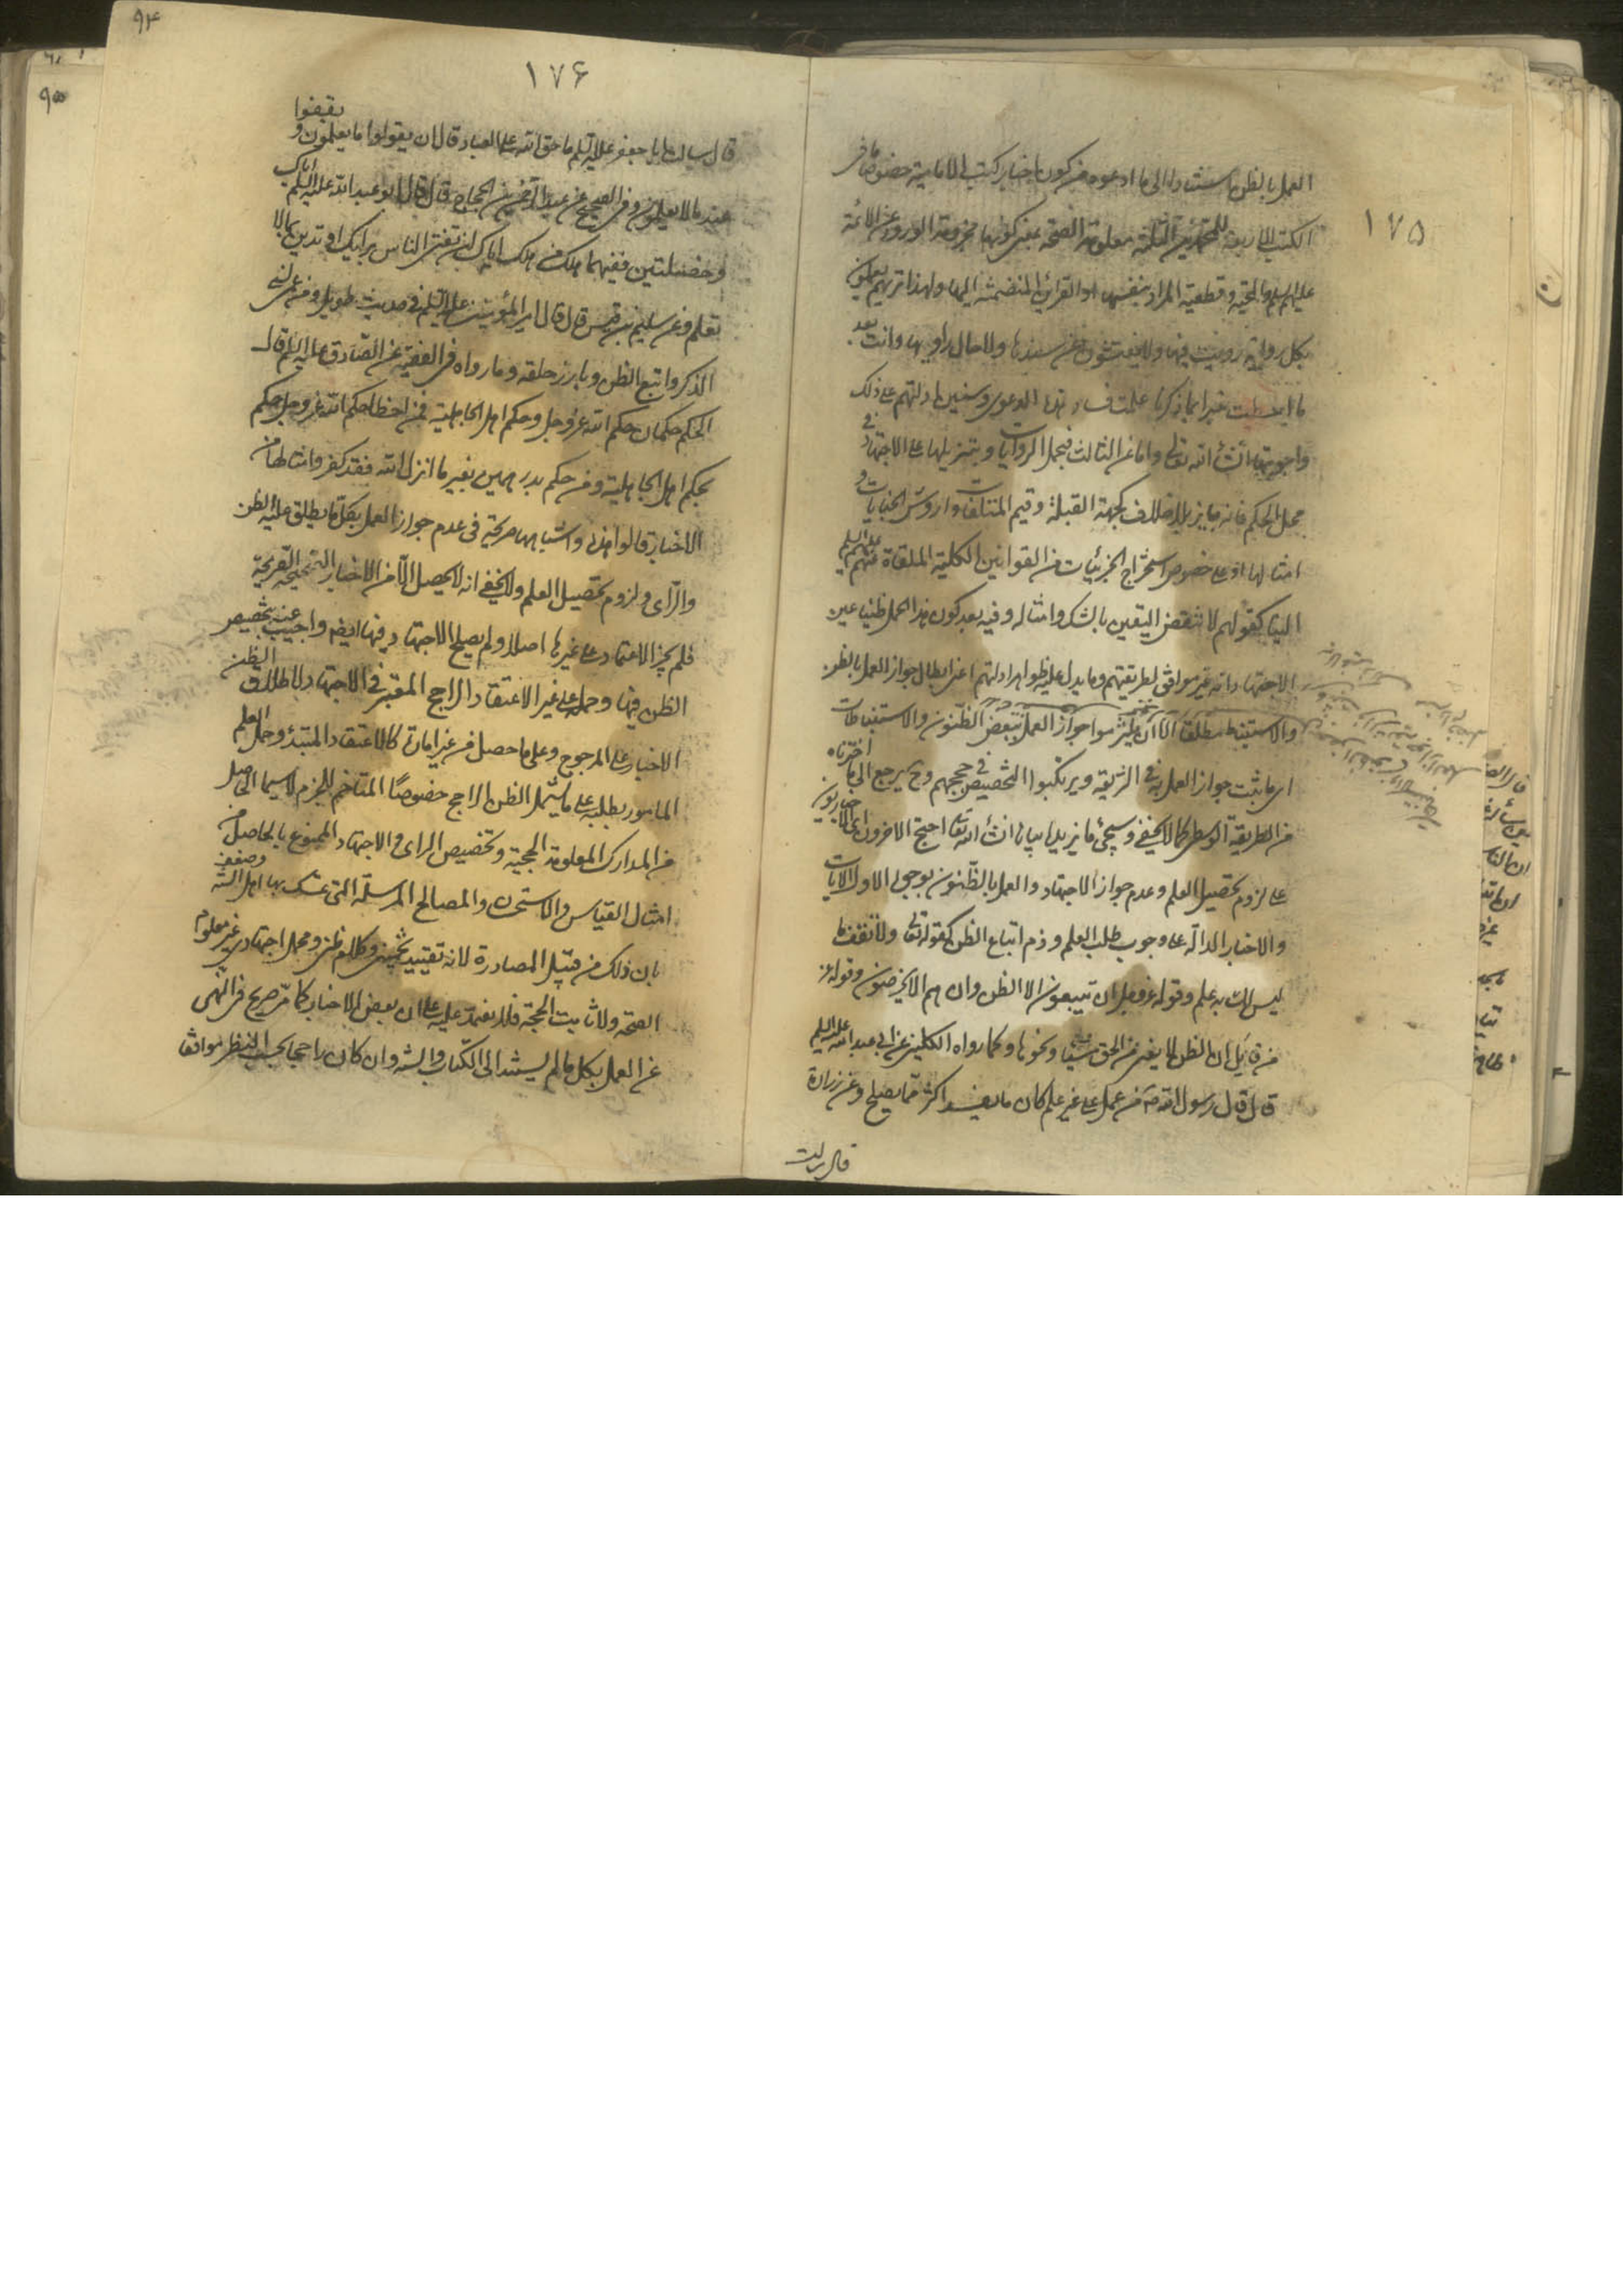 ١٧٥
العمل بالظن استنادا الى ما ادعوه من كون اخبار كتب الامامية خصوصا في
الكتب الاربعة للمحمدين الثلثة معلومة الصحة بمعنى كونها مجزومة الورود عن الائمة
عليهم السلم والحجية وقطعية المراد بنفسها او القرائن المنضمة اليها ولهذا تريهم يعملون
بكل رواية رويت فيها ولا يفتشون عن سندها ولا حال راويها وانت بعد
ما احطت خبرا بما ذكرنا علمت فساد هذا الدعوى وسنبين ادلتهم على ذلك
واجوبتها انشأ الله تعالى واما عن الثالث فبحمل الروايات وبتنزيلها على الاجتهاد في
محل الحكم فانه جايز بلا خلاف كجهة القبلة وقيم المتلفات واروش الجنايات و
امثالها او على خصوص استخراج الجزئيات من القوانين الكلية الملقاة عنهم عليهم السلم
الينا كقولهم لا تنقض اليقين بالشك وامثاله وفيه بعد كون هذا الحمل ظنيا عين
الاجتهاد انه غير موافق لطريقتهم وما يدل عليه ظواهر ادلتهم اعني ابطال جواز العمل بالظن
والاستنباط مطلقا الا ان يلتزموا جواز العمل ببعض الظنون والاستنباطات
اي ما ثبت جواز العمل به في الشريعة ويرتكبوا التخصيص في حججهم وح يرجع الى ما اخترناه
من الطريقة الوسطى كما لا يخفى وسيجئ ما يزيد بيانا انشأ الله تعالى احتج الاخرون اي الاخباريون
على لزوم تحصيل العلم وعدم جواز الاجتهاد والعمل بالظنون بوجوه الاول الايات
والاخبار الدالة على وجوب طلب العلم وذم اتباع الظن كقوله تعالى ولا تقف ما
ليس لك به علم وقوله عز وجل ان تتبعون الا الظن وان هم الا يخرصون وقوله عز
من قايل ان الظن لا يغني من الحق شيئا ونحوها وكما رواه الكليني عن ابي عبد الله عليه السلم
قال قال رسول الله ص من عمل على غير علم كان ما يفسد اكثر مما يصلح وعن زرارة
قال سالت
٩٤
١٧۶
قال سالت ابا جعفر عليه السلم ما حق الله على العباد قال ان يقولوا ما يعلمون و يقفوا
عند ما لا يعلمون وفي الصحيح عن عبد الرحمن بن الحجاج قال قال لي ابو عبد الله عليه السلم اياك
وخصلتين ففيهما هلك من هلك اياك ان تفتى الناس برايك او تدين بما لا
تعلم وعن سليم بن قيس قال قال امير المؤمنين عليه السلم في حديث طويل ومن عمى نسى
الذكر واتبع الظن وبارز خلقه وما رواه في الفقيه عن الصادق عليه السلم قال
الحكم حكمان حكم الله عز وجل وحكم اهل الجاهلية فمن اخطا حكم الله عز وجل حكم
بحكم اهل الجاهلية ومن حكم بدرهمين بغير ما انزل الله فقد كفر وامثالها من
الاخبار قالوا هذه واشباهها صريحة في عدم جواز العمل بكل ما يطلق عليه الظن
والراى ولزوم تحصيل العلم ولا يخفى انه لا يحصل الا من الاخبار الصحيحة الصريحة
فلم يجز الاعتماد على غيرها اصلا ولم يصلح الاجتهاد فيها ايضا واجيب عنه بتخصيص
الظن فيها وحمله على غير الاعتقاد الراجح المعتبر في الاجتهاد لاطلاق الظن
الاخبار على المرجوح وعلى ما حصل من غير امارة كالاعتقاد المبتدئ وحمل العلم
المامور بطلبه على ما يشمل الظن الراجح خصوصا المتاخم للجزم لا سيما الحاصل
من المدارك المعلومة الحجية وتخصيص الراى والاجتهاد الممنوع بالحاصل من
امثال القياس والاستحسان والمصالح المرسلة التي تمسك بها اهل السنة وضعفه
بان ذلك من قبيل المصادرة لانه تقييد تخميني وكلام ظني ومحمل اجتهادي غير معلوم
الصحة ولا ثابت الحجية فلا يعتمد عليه على ان بعض الاخبار كما مر صريح في النهى
عن العمل بكل ما لم يستند الى الكتاب والسنة وان كان راجحا بحسب النظر موافقا
٩٥